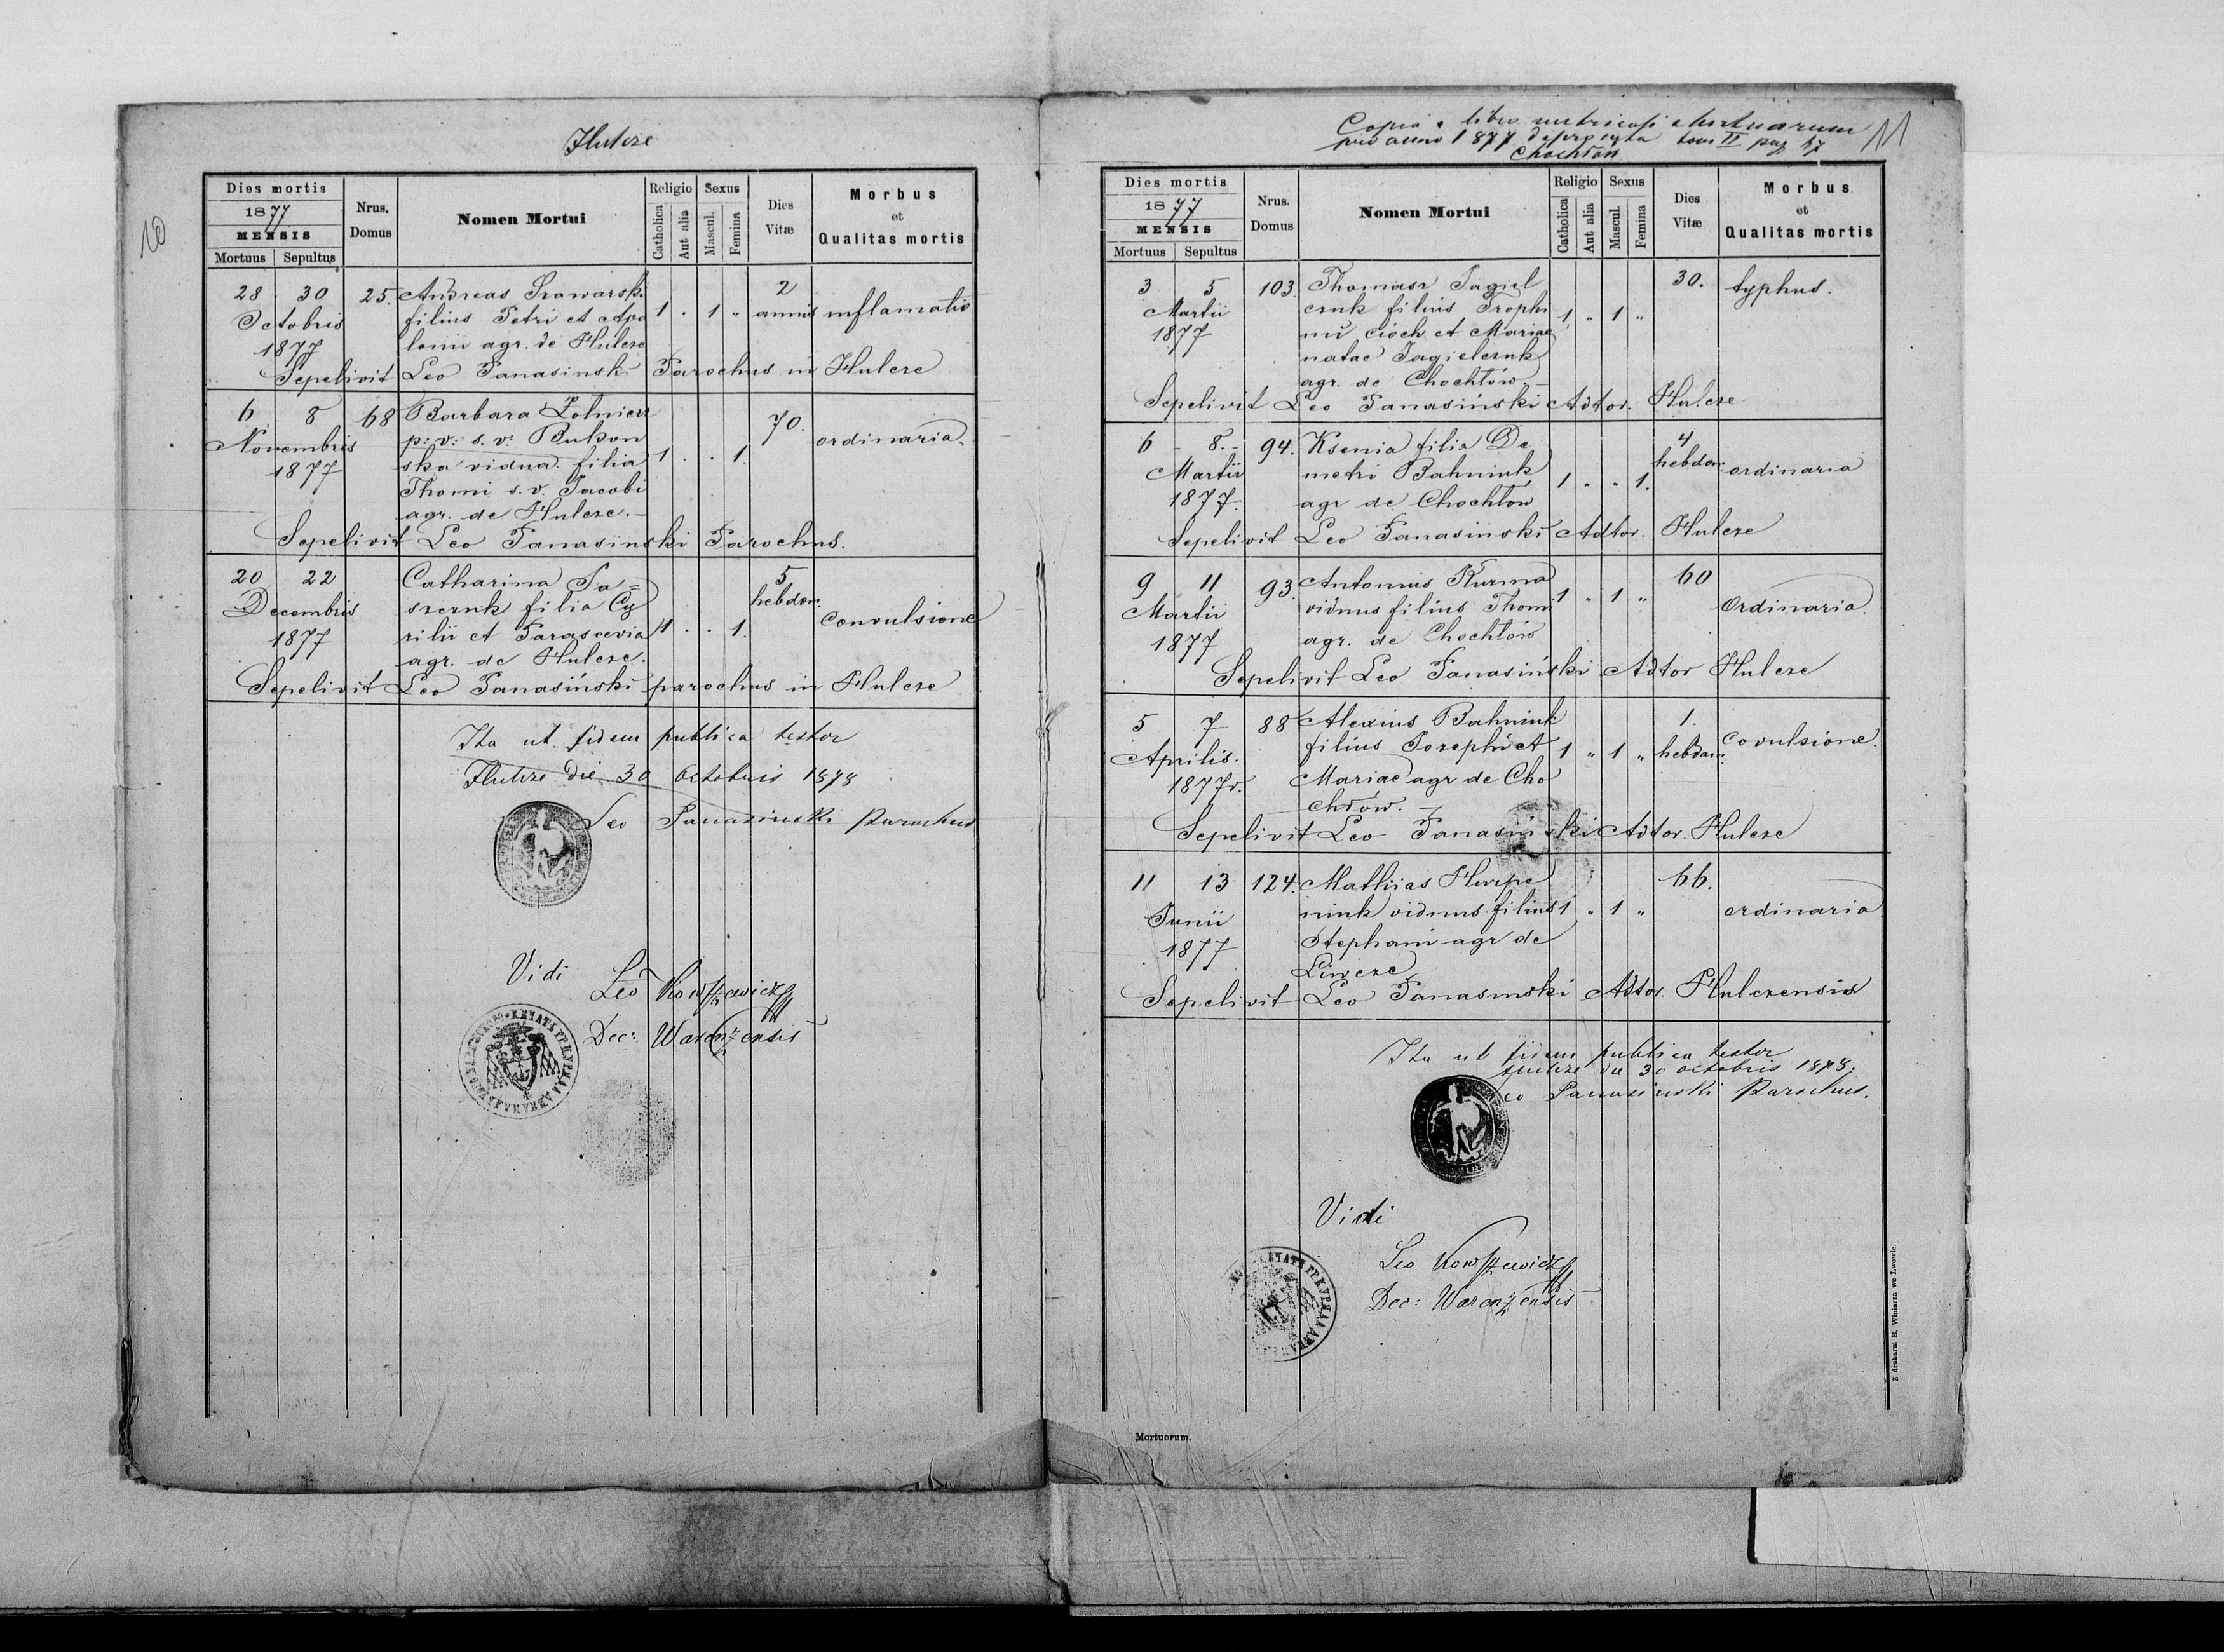 Hulcze
10
Dies mortis
1877
MENSIS
Mortuus Sepultus
Nrus. Domus
Nomen Mortui
Religio
Catholica
Aut alia
Sexus
Mascul.
Femina
Dies Vitæ
Morbus
et
Qualitas mortis
28 30 25. Andreas 2
Octobris filius Petri et Apo 1 . 1 " annus inflamatio
1877 loniu agr. de Hulcze
Sepelivit Leo Panasinski Parochus in Hulcze
6 8 68 Barbara Żolnierz 70.
Novembris p: v: s. v: Bukow ordinaria.
1877 ska vidua. filia 1 . . 1.
Thomi s. v. Jacobi
agr. de Hulcze.
Sepelivit Leo Panasinski Parochus.
20 22 Catharina Ja= 5
Decembris szczuk filia Cy hebdom. convulsione
1877 rilii et Parascevia 1 . . 1.
agr. de Hulcze.
Sepelivit Leo Panasiński parochus in Hulcze
Ita ut fidem publica testor
Hulcze die 30 Octobris 1878
Leo Panasinski Parochus
Vidi
Leo
Dec: Warenzensis
Copia libro metricali Mortuorum 11
pro anno 1877 tom II pag 47
Chochłów
Dies mortis
1877
MENSIS
Mortuus Sepultus
Nrus. Domus
Nomen Mortui
Religio
Catholica
Aut alia
Sexus
Mascul.
Femina
Dies Vitæ
Morbus
et
Qualitas mortis
3 5 103. Thomasz Jagiel 30. typhus.
Martii czuk filius Trophi 1 " 1 "
1877 mū Cioch et Mariae
natae Jagielczuk
agr. de Chochłów.
Sepelivit Leo Panasiński Adtor. Hulcze
6 8. 94. Ksenia filia De 4
Martii metri Bahniuk 1 " " 1. hebdom: ordinaria
1877 agr de Chochłów
Sepelivit Leo Panasiński Adtor. Hulcze
9 11 93. Antonius Kuzma 60
Martii viduus filius Thomi 1 " 1 " Ordinaria.
1877 agr. de Chochłów
Sepelivit Leo Panasiński Adtor Hulcze
5 7 88 Alexius Bahniuk 1.
Aprilis. filius Josephi et 1 " 1 " hebdom: covulsione.
1877r. Mariae agr de Cho
chłów.
Sepelivit Leo Panasinski Adtor. Hulcze
11 13 124. Mathias 66.
Junii niuk viduus filius 1 " 1 " ordinaria
1877 Stephani agr de
Liwcze
Sepelivit Leo Panasinski Adtor. Hulczensis
Ita ut fidem publica testor
Hulcze die 30 octobris 1878.
Leo Panasinski Parochus.
Vidi
Leo
Dec: Warenzensis
Mortuorum.
Z drukarni E. Winiarza we Lwowie.